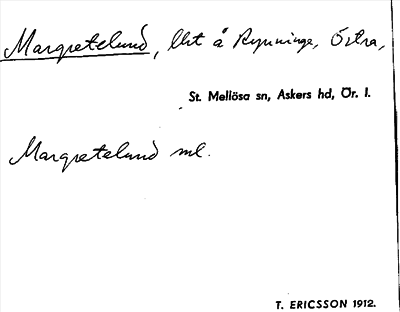 Margretelund, lht å Rynninge, Östra,
St. Mellösa sn, Askers hd, Ör. l.
Margretelund ml.
T. ERICSSON 1912.